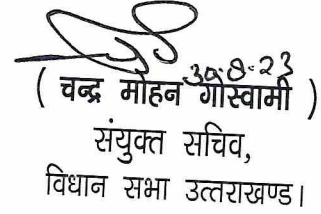 30.8.23
( चन्द्र मोहन गोस्वामी )
संयुक्त सचिव,
विधान सभा उत्तराखण्ड।